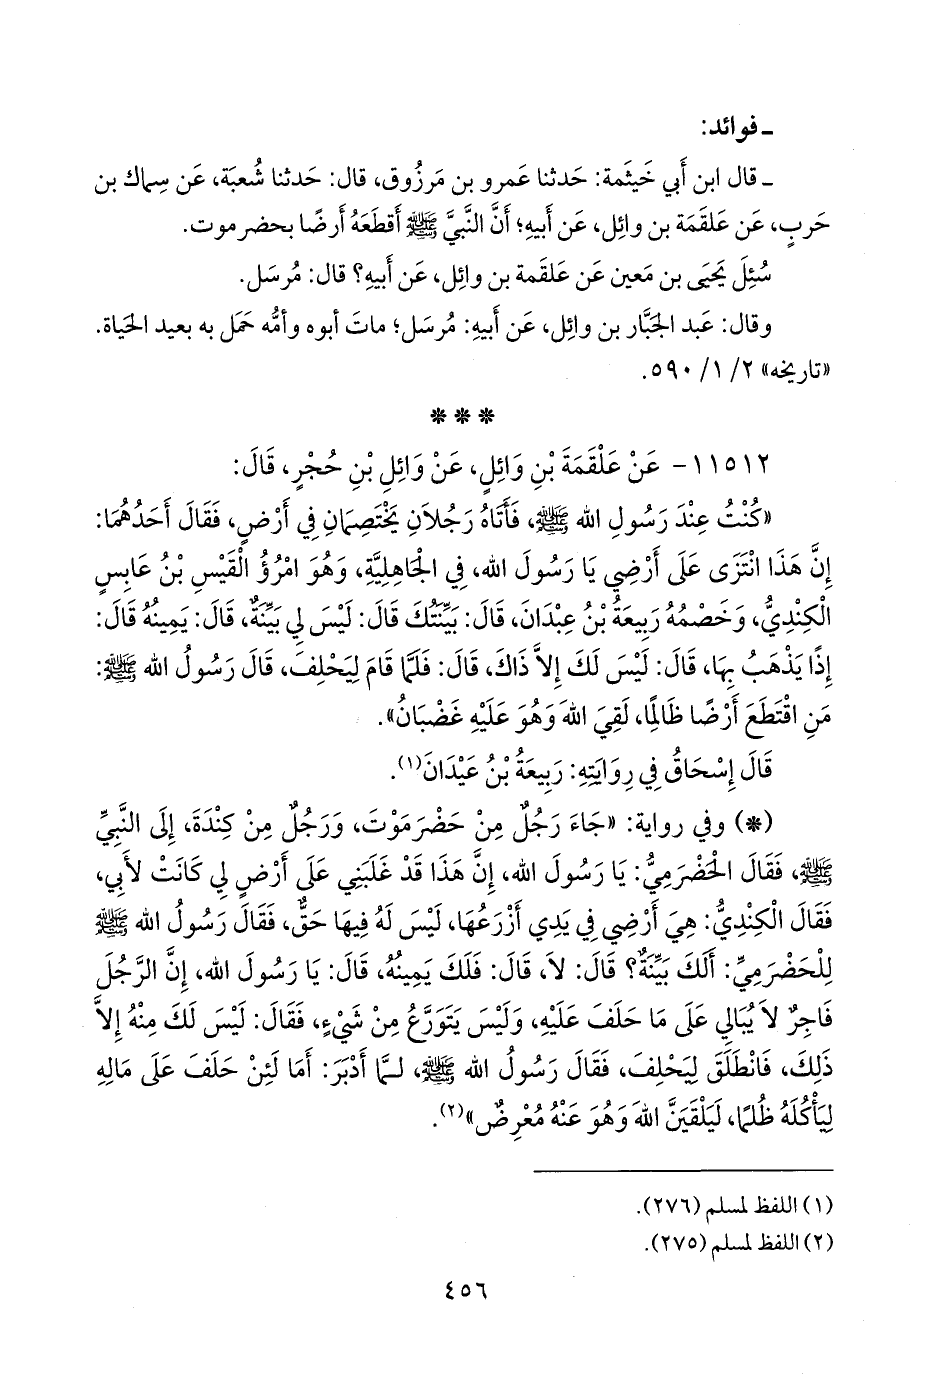 ـ فوائد:
ـ قال ابن أبي خَيثَمة: حَدثنا عَمرو بن مَرزُوق، قال: حَدثنا شُعبَة، عَن سِماك بن
حَربٍ، عَن عَلقَمَة بن وائِل، عَن أَبيهِ؛ أَنَّ النَّبيَّ ﷺ أَقطَعَهُ أَرضًا بحضرموت.
سُئِلَ يَحيَى بن مَعين عَن عَلقَمة بن وائِل، عَن أَبيهِ؟ قال: مُرسَل.
وقال: عَبد الجَبَّار بن وائِل، عَن أَبيهِ: مُرسَل؛ ماتَ أَبوه وأُمُّه حَمَل به بعيد الحَياة.
«تاريخه» ٢/ ١/ ٥٩٠.
* * *
١١٥١٢- عَنْ عَلْقَمَةَ بْنِ وَائِلٍ، عَنْ وَائِلِ بْنِ حُجْرٍ، قَالَ:
«كُنْتُ عِنْدَ رَسُولِ الله ﷺ، فَأَتَاهُ رَجُلاَنِ يَخْتَصِمَانِ فِي أَرْضٍ، فَقَالَ أَحَدُهُمَا:
إِنَّ هَذَا انْتَزَى عَلَى أَرْضِي يَا رَسُولَ الله، فِي الْجَاهِلِيَّةِ، وَهُوَ امْرُؤُ الْقَيْسِ بْنُ عَابِسٍ
الْكِنْدِيُّ، وَخَصْمُهُ رَبِيعَةُ بْنُ عِبْدَانَ، قَالَ: بَيِّنَتُكَ قَالَ: لَيْسَ لِي بَيِّنَةٌ، قَالَ: يَمِينُهُ قَالَ:
إِذًا يَذْهَبُ بِهَا، قَالَ: لَيْسَ لَكَ إِلاَّ ذَاكَ، قَالَ: فَلَمَّا قَامَ لِيَحْلِفَ، قَالَ رَسُولُ الله ﷺ:
مَنِ اقْتَطَعَ أَرْضًا ظَالِمًا، لَقِيَ اللهَ وَهُوَ عَلَيْهِ غَضْبَانُ».
قَالَ إِسْحَاقُ فِي رِوَايَتِهِ: رَبِيعَةُ بْنُ عَيْدَانَ(١).
(*) وفي رواية: «جَاءَ رَجُلٌ مِنْ حَضْرَمَوْتَ، وَرَجُلٌ مِنْ كِنْدَةَ، إِلَى النَّبِيِّ
ﷺ، فَقَالَ الْحَضْرَمِيُّ: يَا رَسُولَ الله، إِنَّ هَذَا قَدْ غَلَبَنِي عَلَى أَرْضٍ لِي كَانَتْ لأَبِي،
فَقَالَ الْكِنْدِيُّ: هِيَ أَرْضِي فِي يَدِي أَزْرَعُهَا، لَيْسَ لَهُ فِيهَا حَقٌّ، فَقَالَ رَسُولُ الله ﷺ
لِلْحَضْرَمِيِّ: أَلَكَ بَيِّنَةٌ؟ قَالَ: لاَ، قَالَ: فَلَكَ يَمِينُهُ، قَالَ: يَا رَسُولَ الله، إِنَّ الرَّجُلَ
فَاجِرٌ لاَ يُبَالِي عَلَى مَا حَلَفَ عَلَيْهِ، وَلَيْسَ يَتَوَرَّعُ مِنْ شَيْءٍ، فَقَالَ: لَيْسَ لَكَ مِنْهُ إِلاَّ
ذَلِكَ، فَانْطَلَقَ لِيَحْلِفَ، فَقَالَ رَسُولُ الله ﷺ، لَمَّا أَدْبَرَ: أَمَا لَئِنْ حَلَفَ عَلَى مَالِهِ
لِيَأْكُلَهُ ظُلْمًا، لَيَلْقَيَنَّ اللهَ وَهُوَ عَنْهُ مُعْرِضٌ»(٢).
(١) اللفظ لمسلم (٢٧٦).
(٢) اللفظ لمسلم (٢٧٥).
٤٥٦